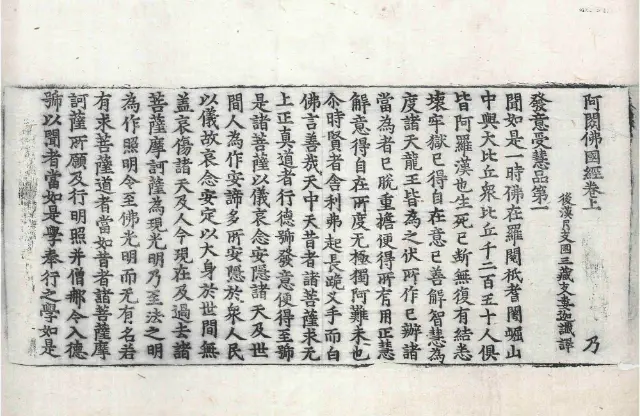 阿閦佛國經卷上 乃
後漢月支國三藏支婁迦讖譯
發意受慧品第一
聞如是一時佛在羅閱祇耆闍崛山
中與大比丘衆比丘千二百五十人俱
皆阿羅漢也生死已斷無復有結悉
壞牢獄已得自在意已善解智慧為
度諸天龍王皆為之伏所作已辦諸
當為者已脫重擔便得所有用正慧
解意得自在所度无極獨阿難未也
尒時賢者舍利弗起長跪叉手而白
佛言善哉天中天昔者諸菩薩求无
上正真道者行德號發意便得至號
是諸菩薩以儀哀念安隱諸天及世
間人為作安諦多所安隱於衆人民
以儀故哀念安定以大身於世間無
蓋哀傷諸天及人今現在及過去諸
菩薩摩訶薩為現光明乃至法之明
為作照明令至佛光明而无有名若
有求菩薩道者當如昔者諸菩薩摩
訶薩所願及行明照并僧那令入德
號以聞者當如是學奉行之學如是